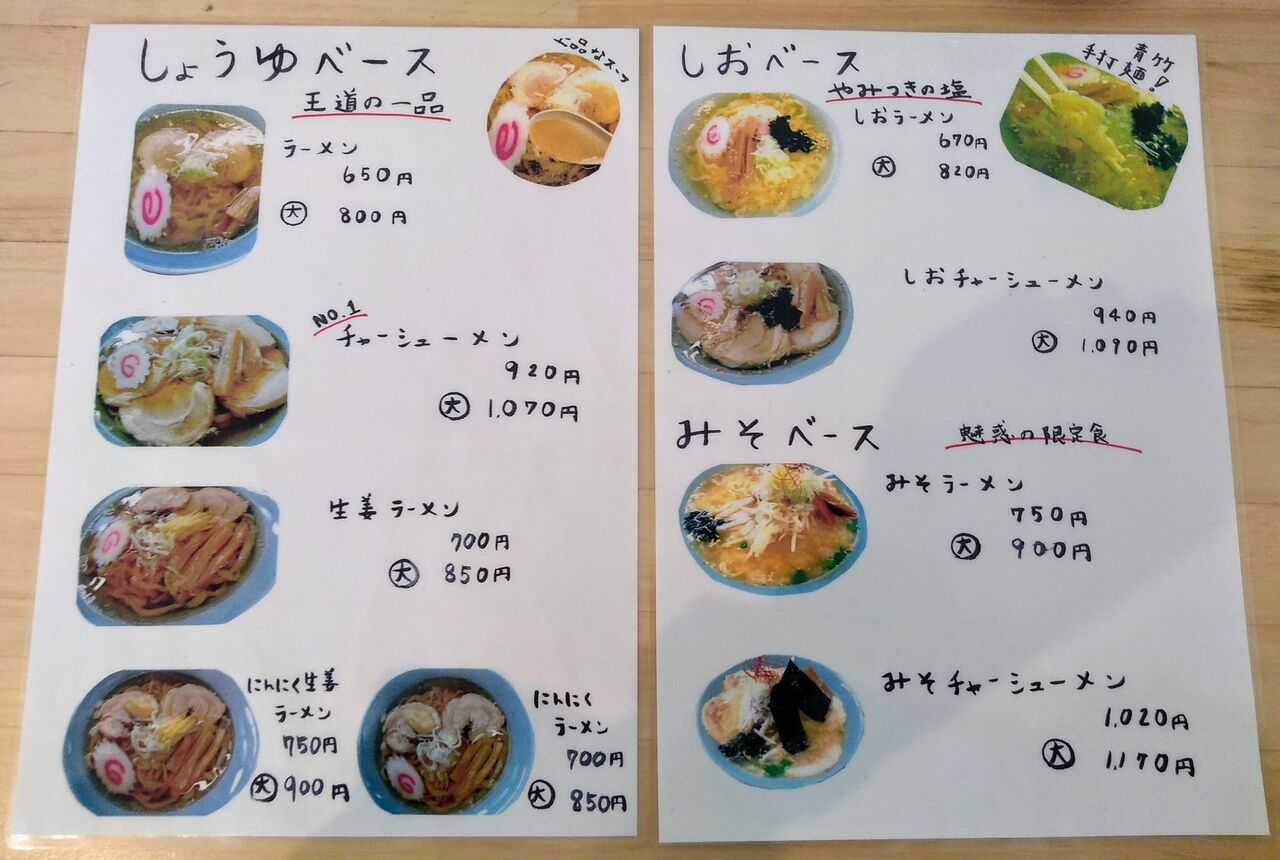 しょうゆベース
上品なスープ
王道の一品
ラーメン
650円
大 800円
NO.1
チャーシューメン
920円
大 1,070円
生姜ラーメン
700円
大 850円
にんにく生姜
ラーメン
750円
大 900円
にんにく
ラーメン
700円
大 850円
しおベース
青竹
手打麺!
やみつきの塩
しおラーメン
670円
大 820円
しおチャーシューメン
940円
大 1,090円
みそベース
魅惑の限定食
みそラーメン
750円
大 900円
みそチャーシューメン
1,020円
大 1,170円